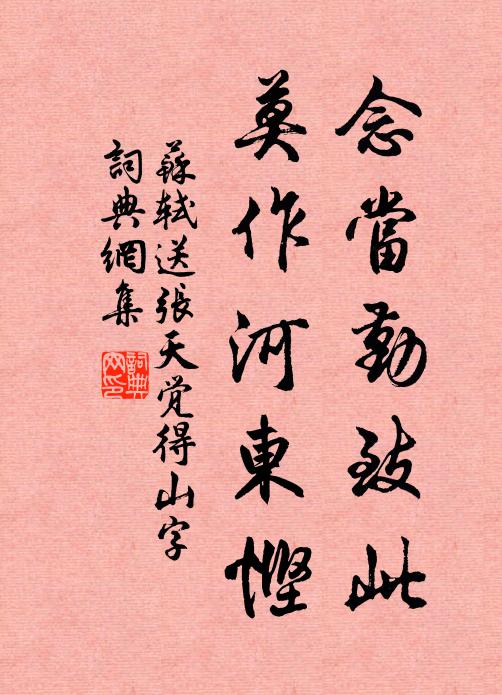 念當勤致此
莫作河東慳
蘇軾送張天覺得山字
詞典網集
詞典網印